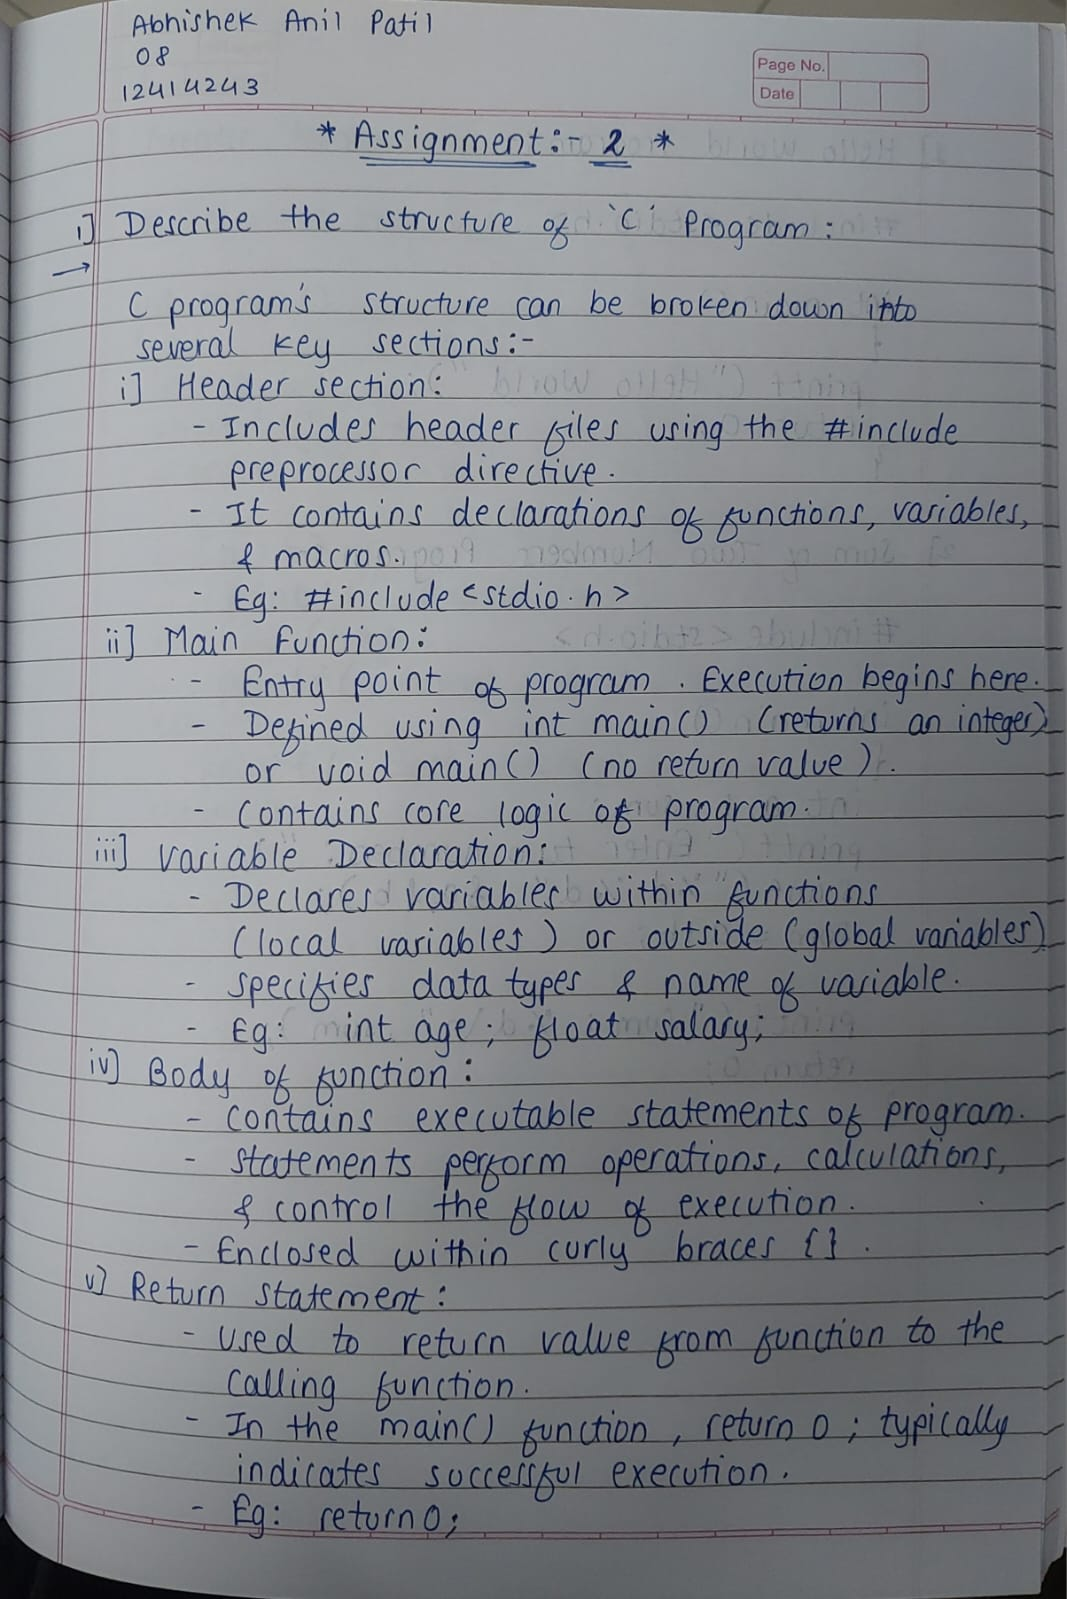 Abhishek Anil Patil
08
12414243
Page No.
Date
* Assignment:- 2 *
i] Describe the structure of 'C' Program:
→
C program's structure can be broken down into
several key sections:-
i] Header section:
- Includes header files using the #include
preprocessor directive.
- It contains declarations of functions, variables,
& macros.
- Eg: #include <stdio.h>
ii] Main Function:
- Entry point of program. Execution begins here.
- Defined using int main() (returns an integer)
or void main() (no return value).
- Contains core logic of program.
iii] Variable Declaration:
- Declares variables within functions
(local variables) or outside (global variables)
- specifies data types & name of variable.
- Eg: int age; float salary;
iv] Body of function:
- Contains executable statements of program.
- Statements perform operations, calculations,
& control the flow of execution.
- Enclosed within curly braces {}.
v] Return statement:
- Used to return value from function to the
calling function.
- In the main() function, return 0; typically
indicates successful execution.
- Eg: return 0;